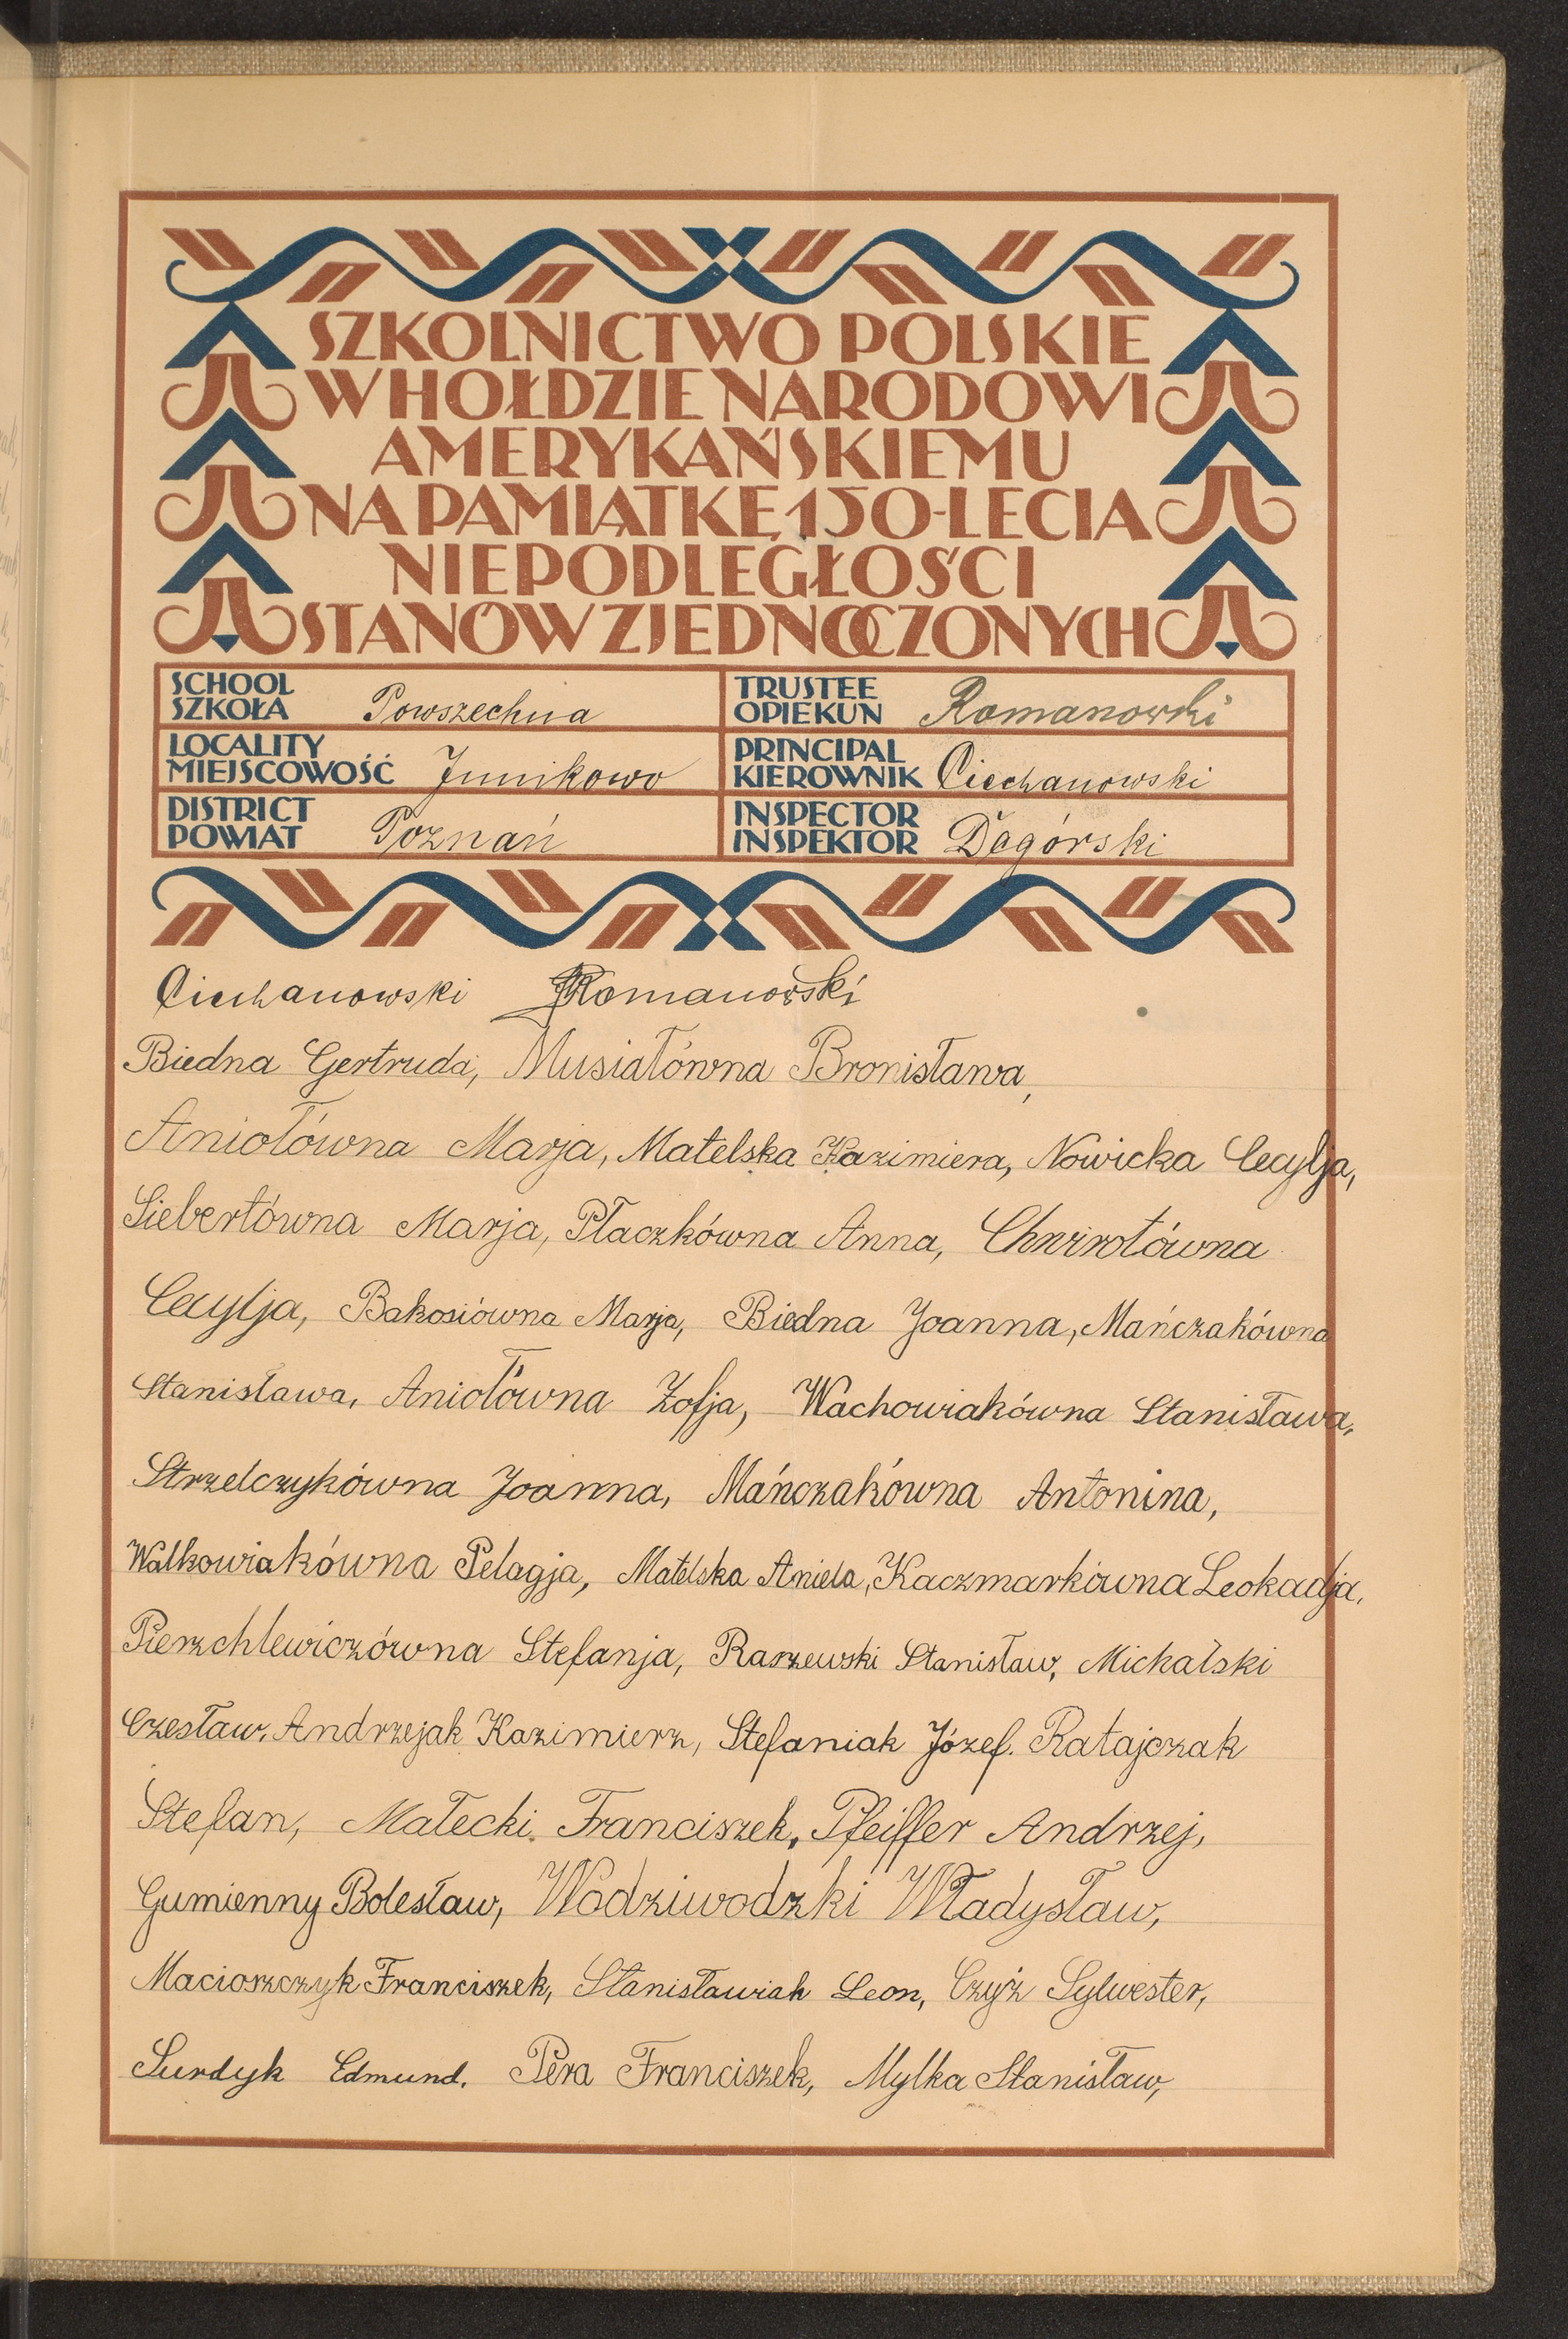 SZKOLNICTWO POLSKIE
W HOŁDZIE NARODOWI
AMERYKAŃSKIEMU
NA PAMIĄTKĘ 150-LECIA
NIEPODLEGŁOŚCI
STANÓW ZJEDNOCZONYCH
SCHOOL
SZKOŁA Powszechna
TRUSTEE
OPIEKUN Romanowski
LOCALITY
MIEJSCOWOŚĆ Junikowo
PRINCIPAL
KIEROWNIK Ciechanowski
DISTRICT
POWIAT Poznań
INSPECTOR
INSPEKTOR Dagórski
Ciechanowski Romanowski
Biedna Gertruda, Musiałówna Bronisława,
Aniołówna Marja, Matelska Kazimiera, Nowicka Cecylja,
Siebertówna Marja, Płaczkówna Anna, Chwirotówna
Cecylja, Bakosiówna Marja, Biedna Joanna, Mańczakówna
Stanisława, Aniołówna Zofja, Wachowiakówna Stanisława,
Strzelczykówna Joanna, Mańczakówna Antonina,
Walkowiakówna Pelagja, Matelska Aniela, Kaczmarkówna Leokadja,
Pierzchlewiczówna Stefanja, Raszewski Stanisław, Michalski
Czesław, Andrzejak Kazimierz, Stefaniak Józef. Ratajczak
Stefan, Małecki Franciszek, Pfeiffer Andrzej,
Gumienny Bolesław, Wodziwodzki Władysław,
Macioszczyk Franciszek, Stanisławiak Leon, Czyż Sylwester,
Surdyk Edmund. Pera Franciszek, Mylka Stanisław,